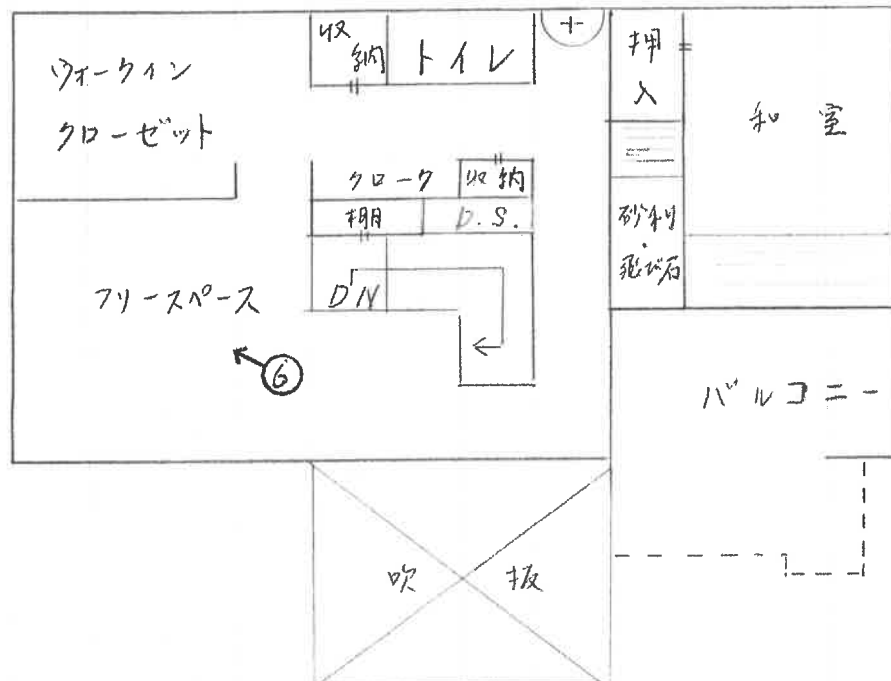 ウォークイン
クローゼット
収
納
トイレ
押
入
和室
クローク
収納
棚
D.S.
砂利
・
飛び石
フリースペース
DN
6
バルコニー
吹抜